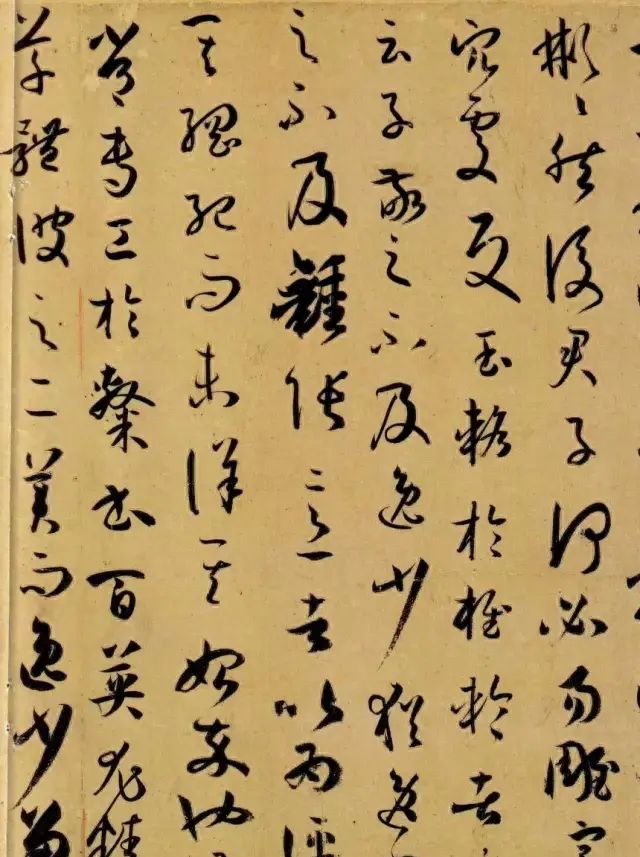 彬〻然後君子何必易雕宮
穴處反玉輅於椎輪者
云子敬之不及逸少猶逸
之不及鍾張意者以為評
其綱紀而未詳其始卒也
常專工於隸書百英尤精
草體彼之二美而逸少兼